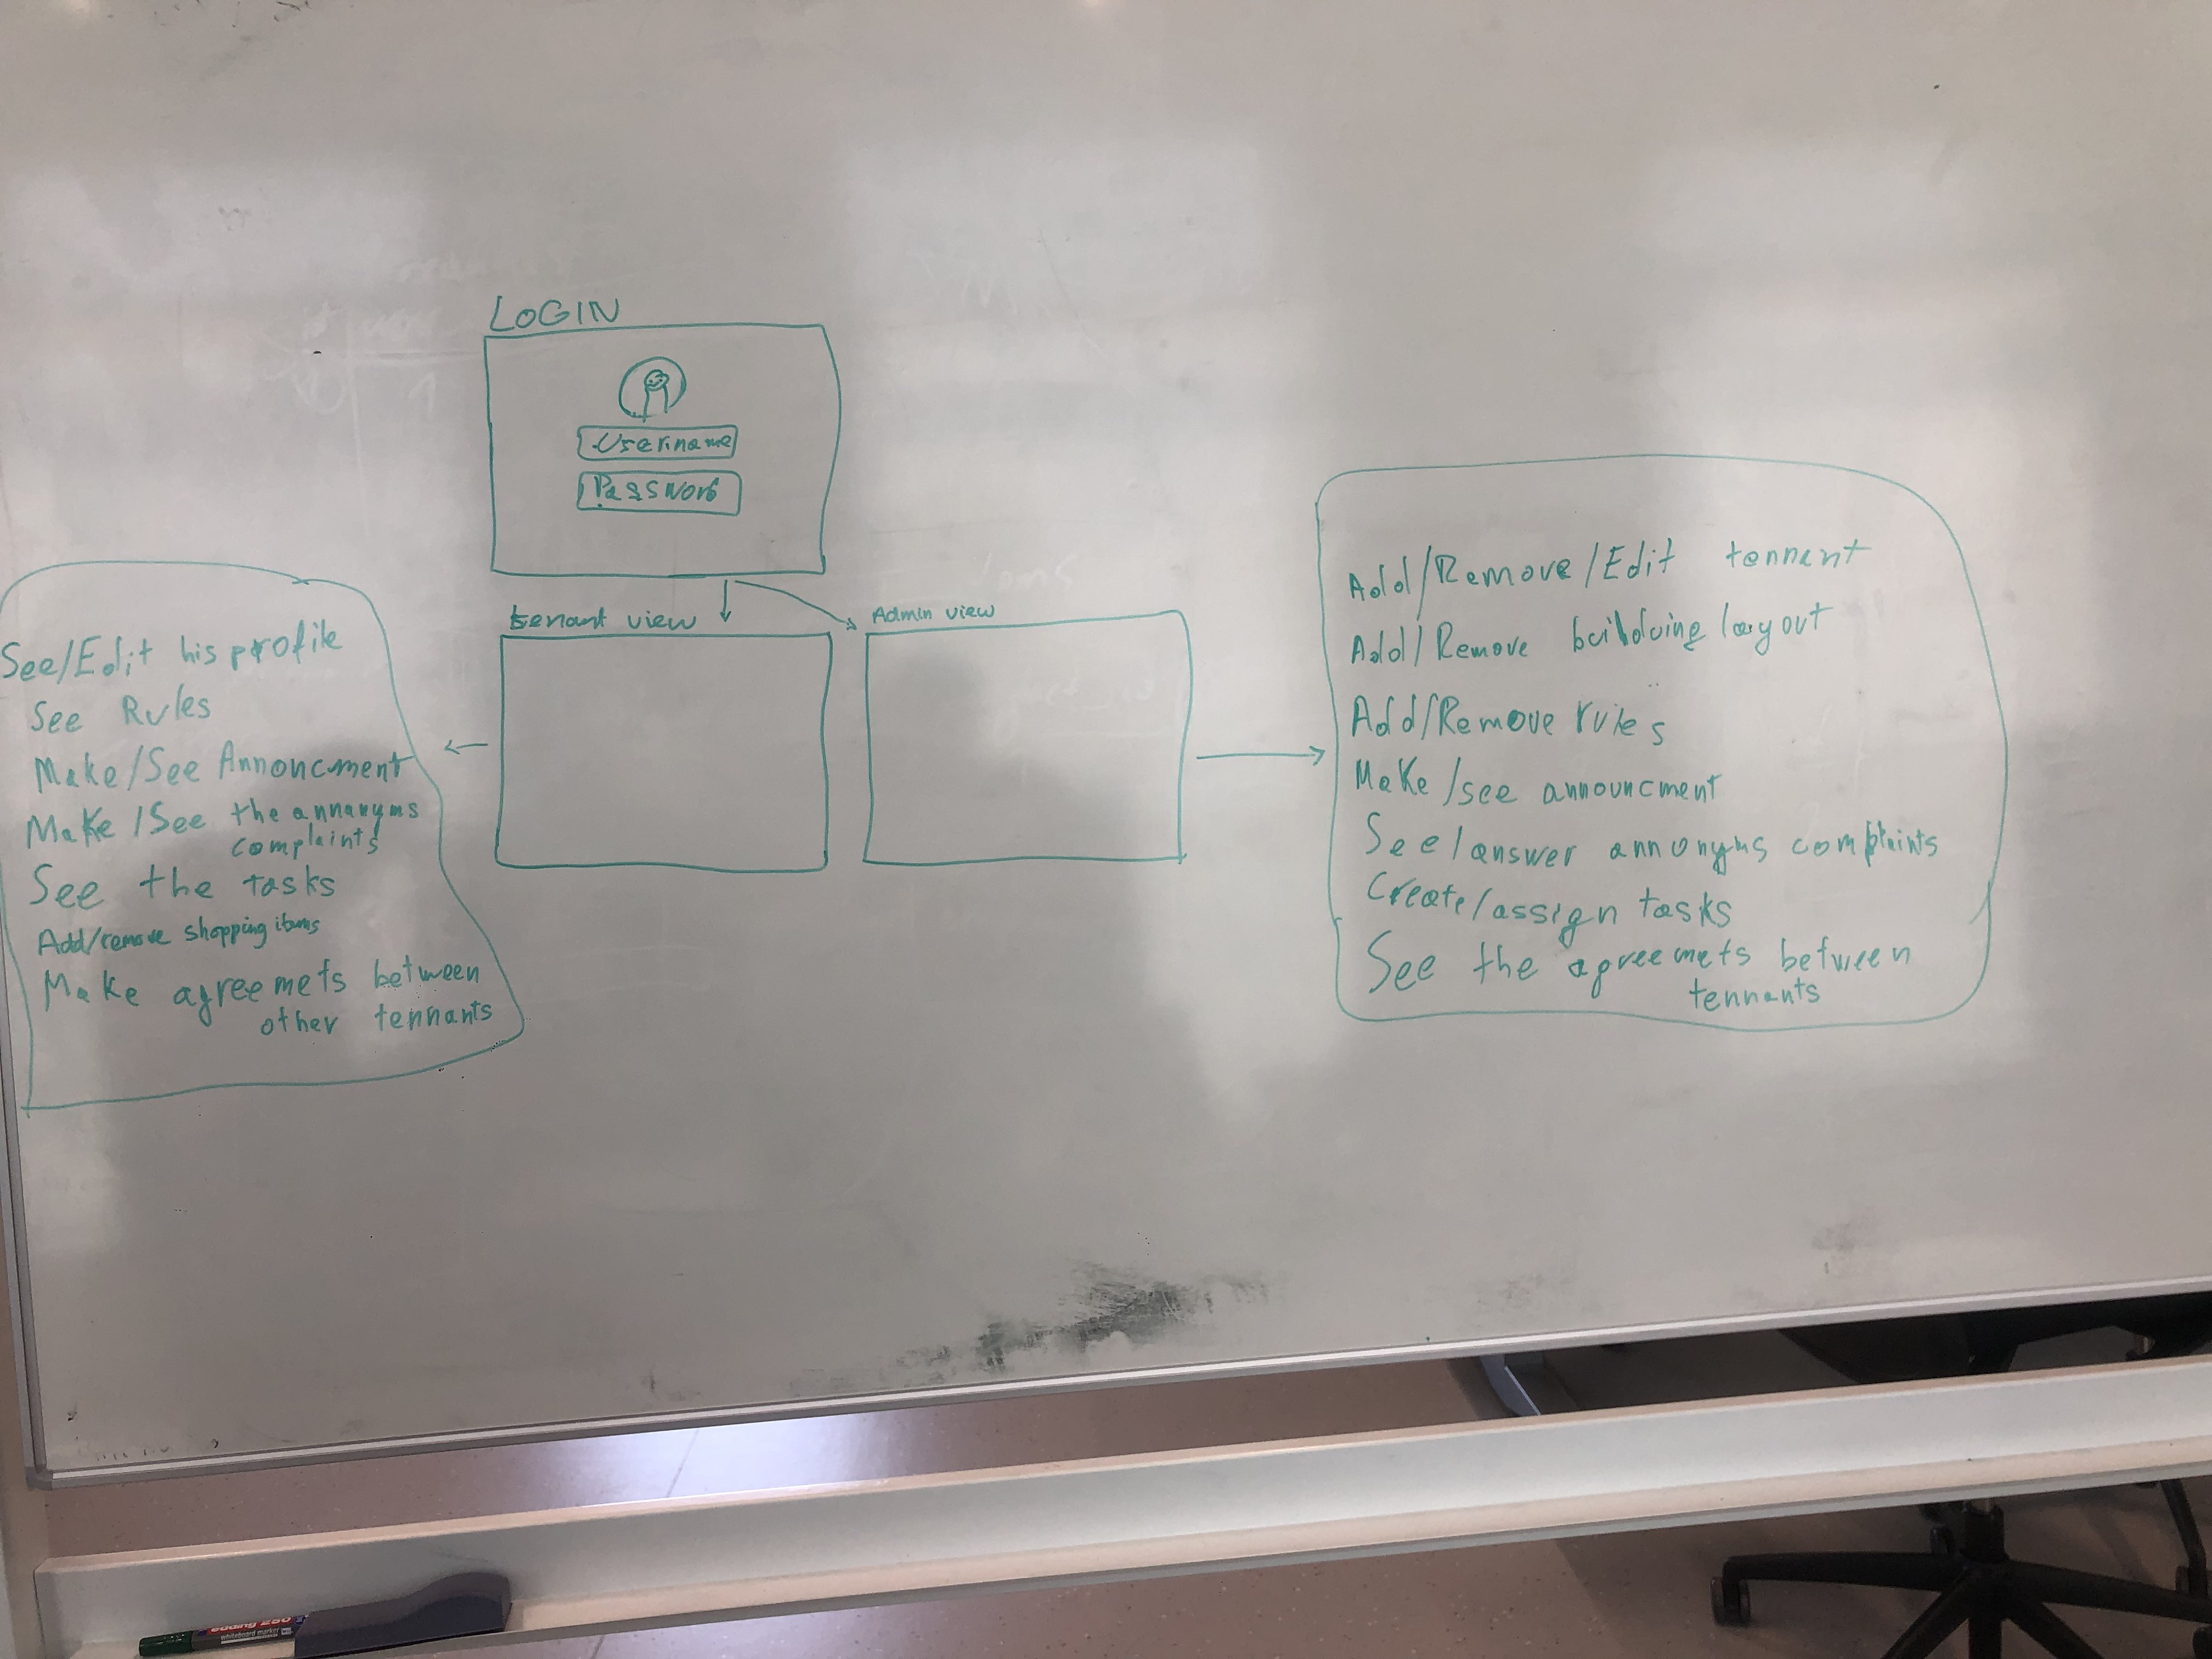 LOGIN
Username
Password
tenant view
Admin view
See/Edit his profile
See Rules
Make/See Annoncment
Make/See the annanyms
complaints
See the tasks
Add/remove shopping items
Make agreemets between
other tennants
Add/Remove/Edit tennant
Add/Remove building layout
Add/Remove rules
Make/see announcment
See/answer annonyms complaints
Create/assign tasks
See the agreemets between
tennants
edding 250
whiteboard marker